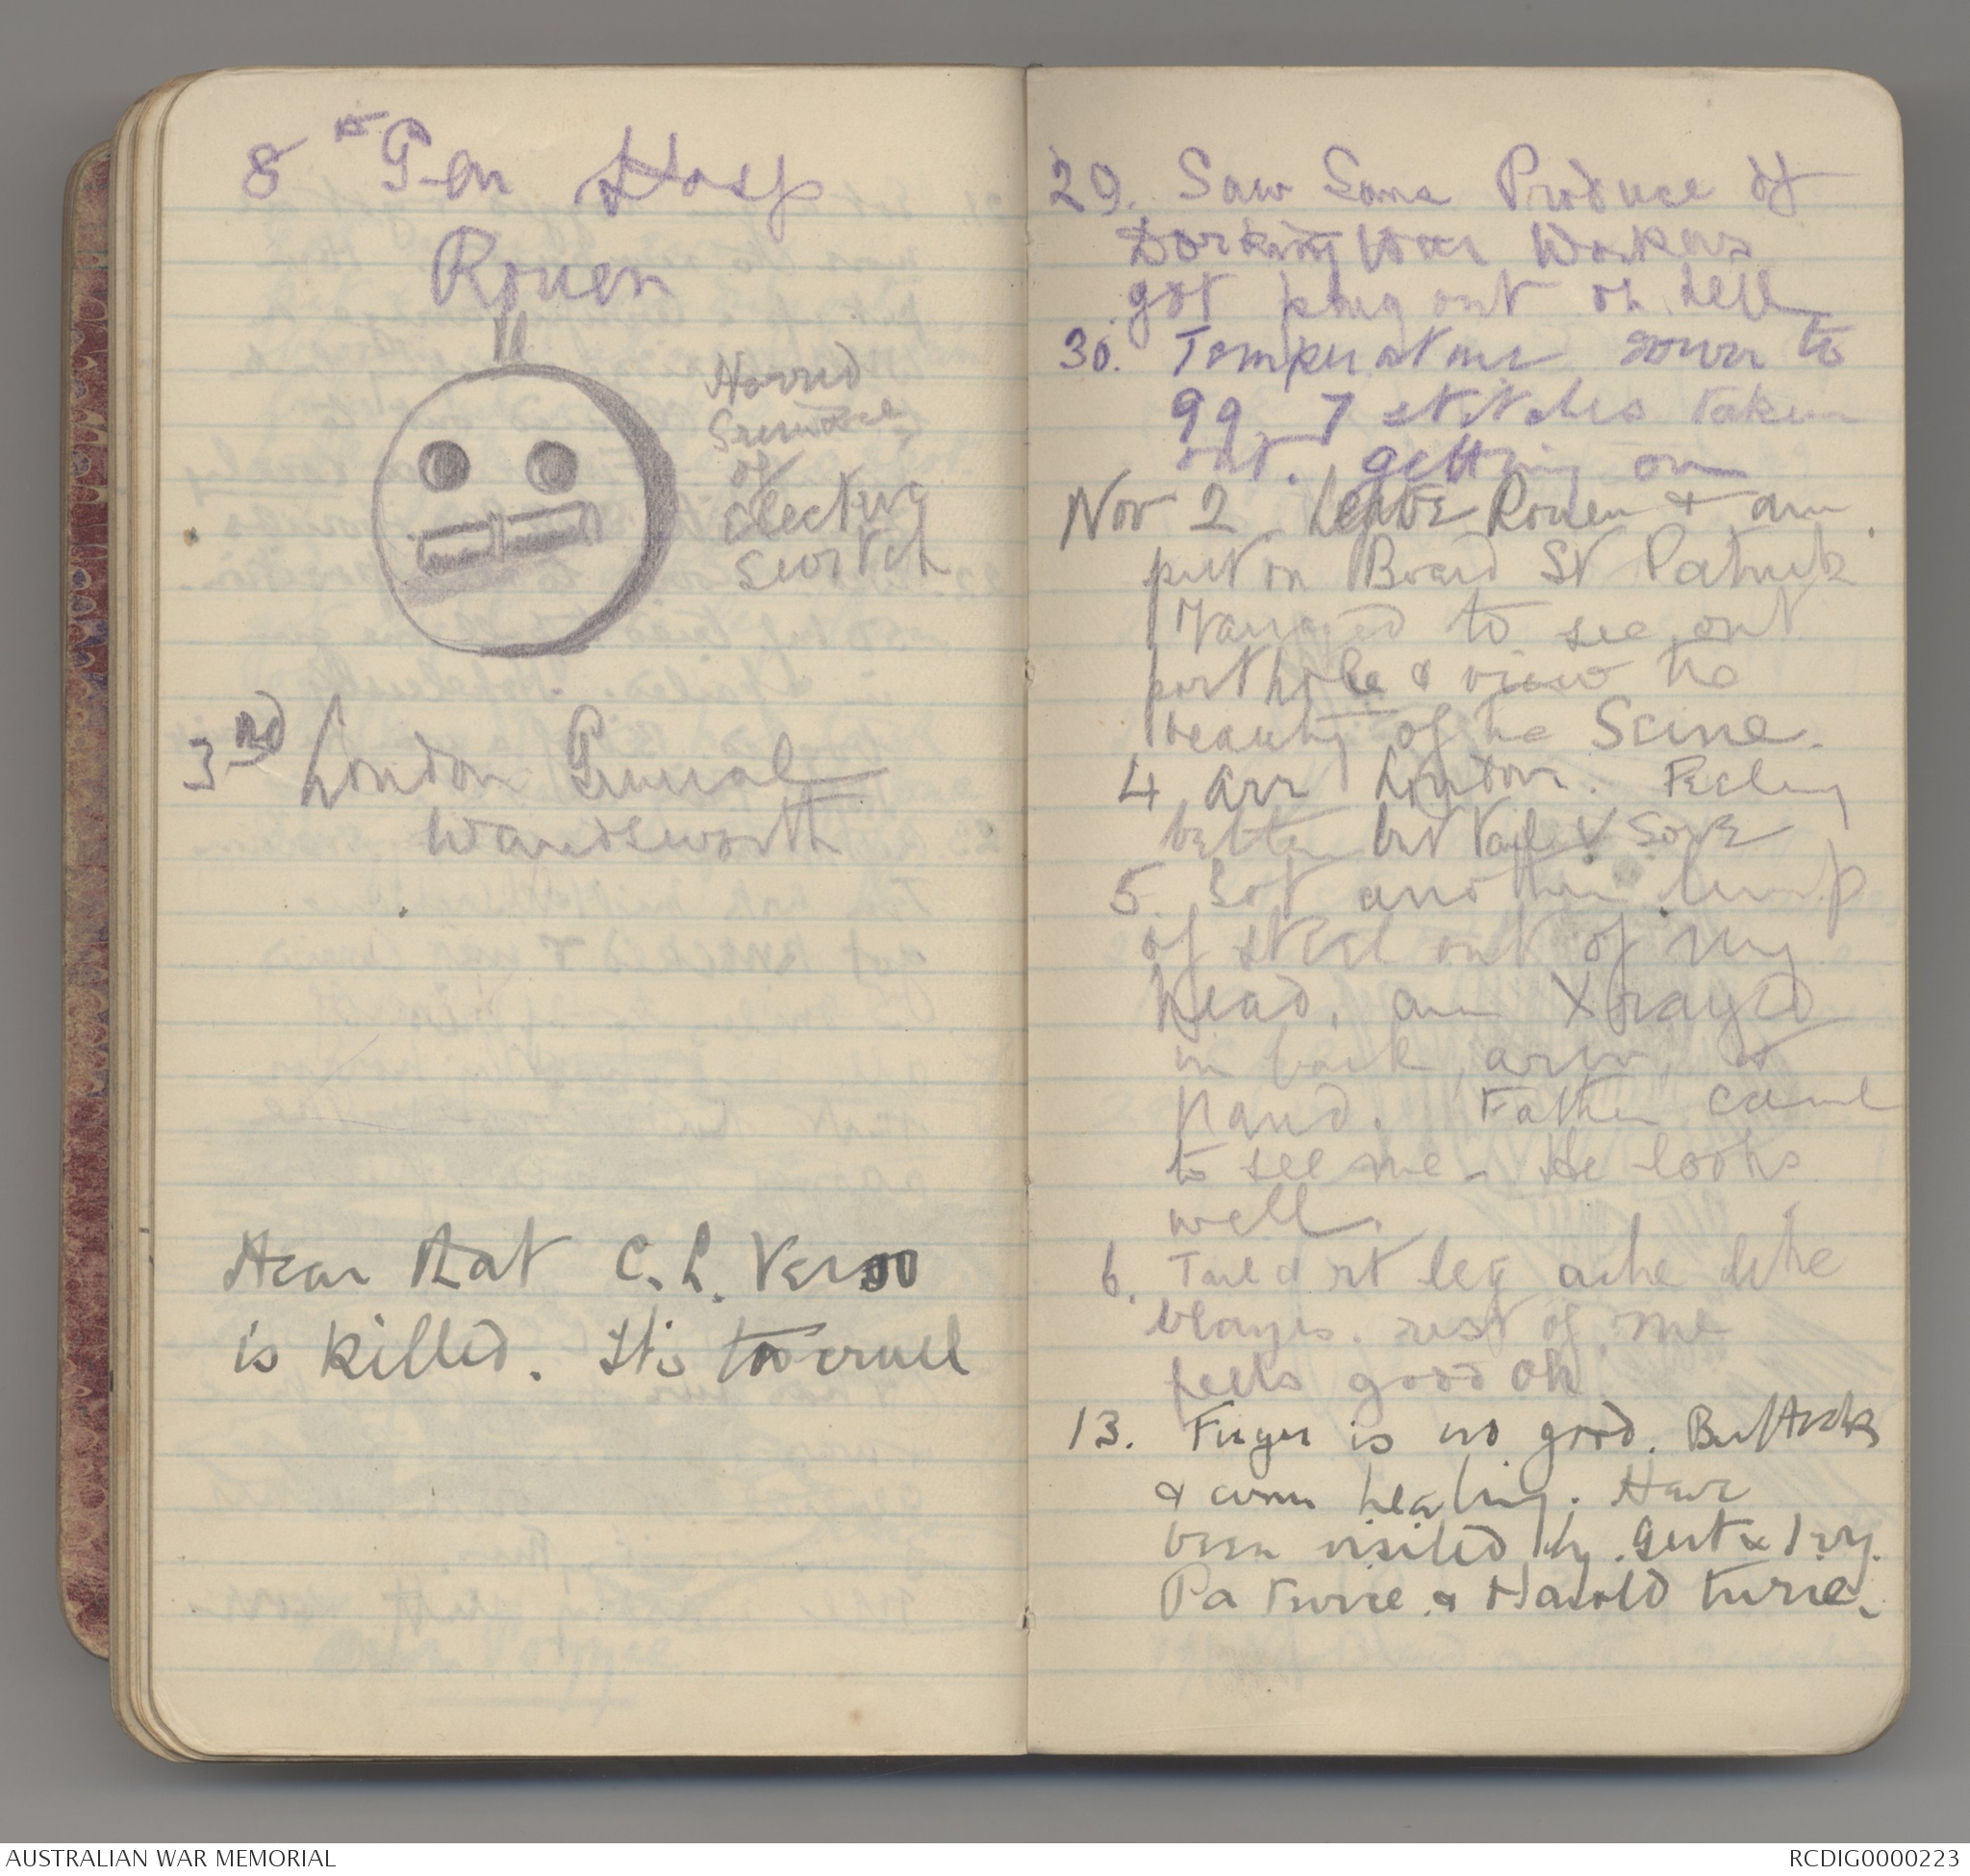 8th Gen Hosp
Rouen
Horrid
of
electric
switch
3RD London General
Wandsworth
Hear that C. L. Verso
is killed. It is too cruel
29. Saw Some Produce of
Dorking War Workers
got plug out oh hell
30. Temperature down to
99. 7 stitches taken
out. getting on
Nov 2 Leave Rouen & am
put on Board St Patrick
Managed to see out
port hole & view the
beauty of the Seine.
4 arr London. Feeling
better but tail V Sore
5. Got another lump
of steel out of my
head, am Xrayed
in back, arm, &
hand. Father came
to see me - He looks
well.
6. Tail & rt leg ache like
blazes. rest of me
feels good oh
13. Finger is no good. Buttocks
& arm healing. Have
been visited by Gert & Ivy.
Pa twice & Harold twice.
AUSTRALIAN WAR MEMORIAL
RCDIG0000223